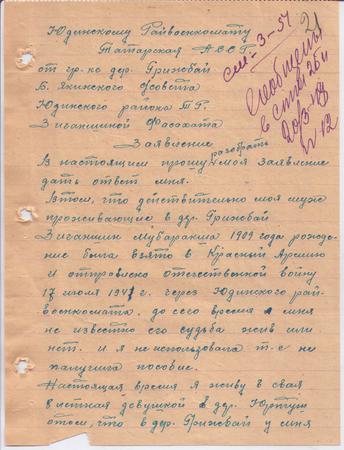 Юдинскому Райвоенкомату
Татарская АССР
от гр-ке дер. Гришбай
Б. Якинского с/совета
Юдинского района Т.Р.
Зиганшиной Фасахата
Заявление
разобрать
В настоящим прошу моя заявление
дать ответ мня.
Втом, что действительно моя мужа
проживающие в дер. Гришбай
Зиганшин Мубаракша 1909 года рожде-
ние была взято в Красний Армию
и отправлено отечественной войну
17 июля 1941 г. через Юдинского рай-
военкомата. до сего время мня
не известно его судьба жив или
нет. и я не использовала т-е не
палучила пособие.
Настоящая время я живу в свая
8 летная девушкой в дер. Юртуш
относ, что в дер. Гришбай у мня
см-3-54
21
Сообщены
20/3-48